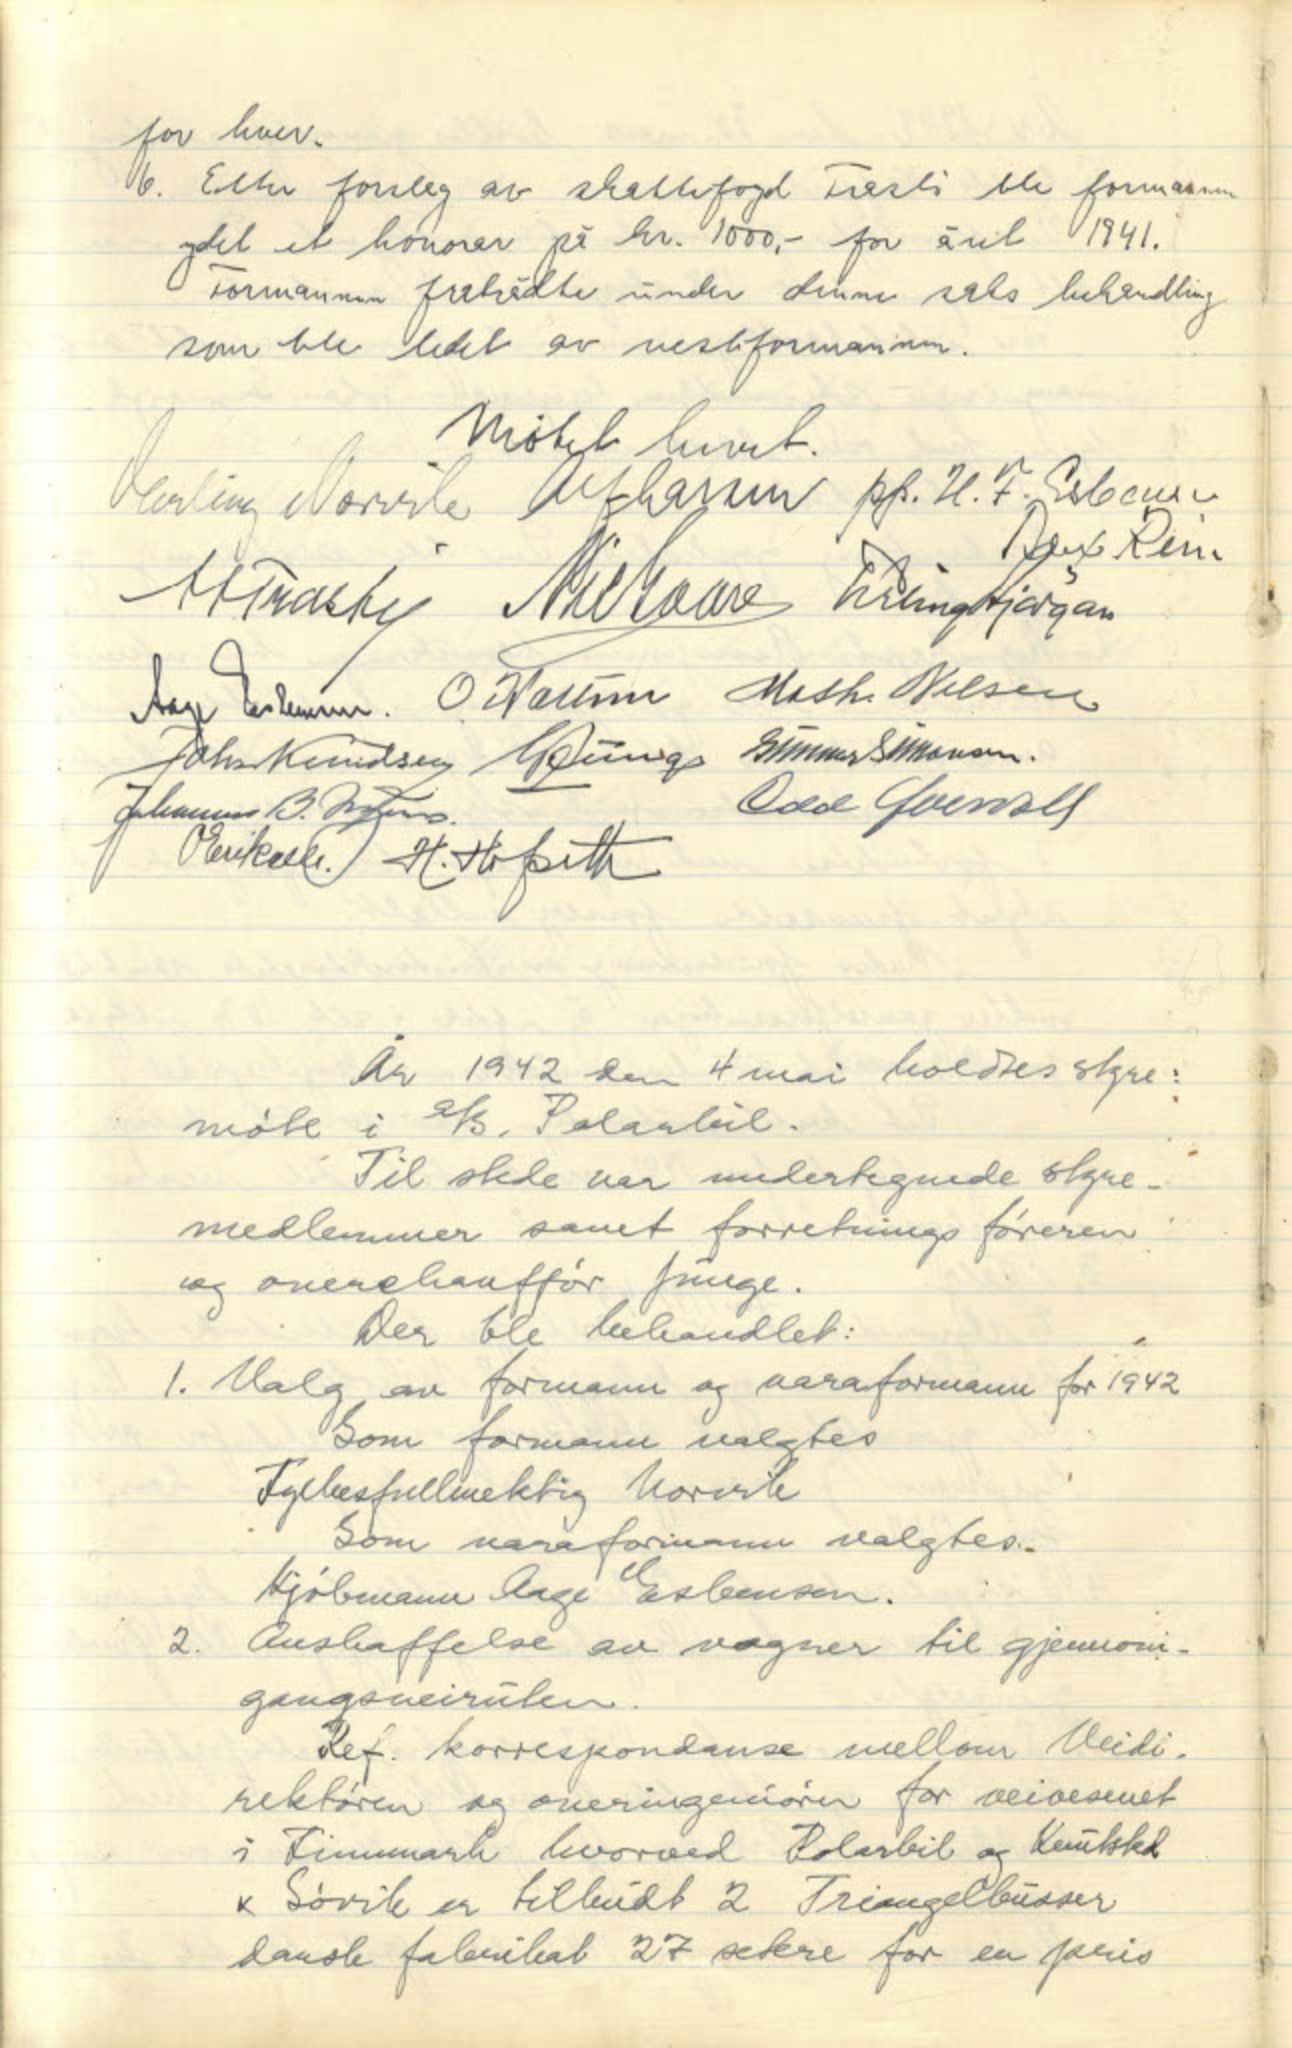 for hver.
6. Etter forslag av skattefogd Træsti ble formannen
ydet et honorar på kr. 1000,- for året 1941.
Formannen fratrådte under denne saks behandling
som ble ledet av nestformannen.
Møtet hevet.
Erling Norvik pp. H. F. Esbensen
Erling Kjørgan
Aage Esbensen. Math. Nilsen
John Knudsen Gunnar Simonsen.
Johannes B. Odd
H. Hofseth
År 1942 den 4 mai holdtes styre:
møte i A/S. Polarbil.
Til stede var undertegnede styre-
medlemmer samt forretningsføreren
og overchauffør Junge.
Der ble behandlet:
1. Valg av formann og varaformann for 1942
Som formann valgtes
Fylkesfullmektig Norvik
Som varaformann valgtes.
Kjøbmann Aage Esbensen.
2. Anskaffelse av vogner til gjennom-
gangsveiruten.
Ref. korrespondanse mellom Veidi-
rektøren og overingeniøren for veivesenet
i Finnmark hvorved Polarbil og
x Søvik er tilbudt 2 Triangelbusser
dansk fabrikat 27 setere for en pris